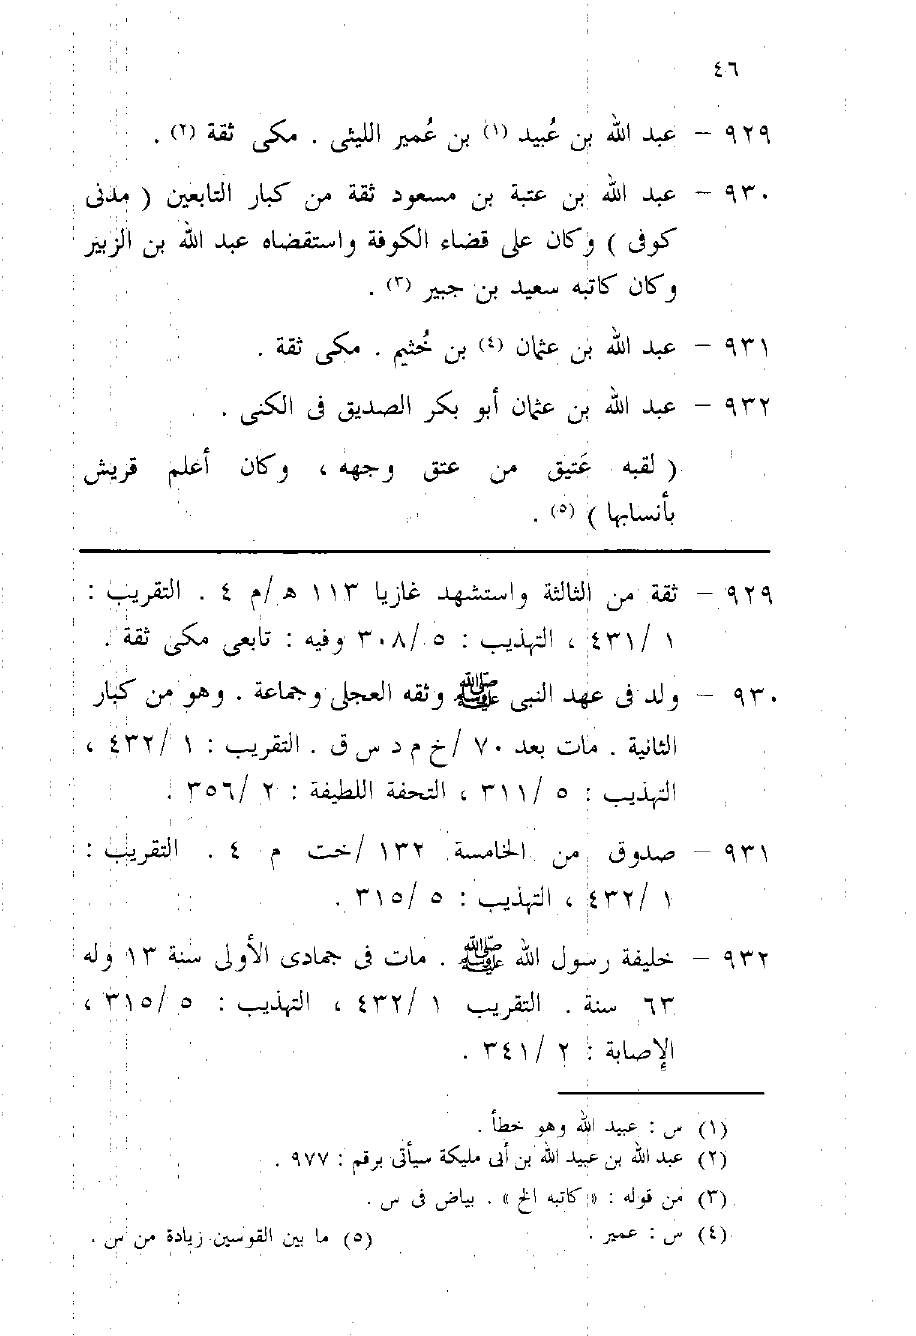 ٤٦
٩٢٩ - عبد الله بن عُبيد (١) بن عُمير الليثى . مكى ثقة (٢) .
٩٣٠ - عبد الله بن عتبة بن مسعود ثقة من كبار التابعين ( مدنى
كوفى ) وكان على قضاء الكوفة واستقضاه عبد الله بن الزبير
وكان كاتبه سعيد بن جبير (٣) .
٩٣١ - عبد الله بن عثمان (٤) بن خُثيم . مكى ثقة .
٩٣٢ - عبد الله بن عثمان أبو بكر الصديق فى الكنى .
( لقبه عَتيق من عتق وجهه ، وكان أعلم قريش
بأنسابها ) (٥) .
٩٢٩ - ثقة من الثالثة واستشهد غازيا ١١٣ هـ/م ٤ . التقريب :
١ /٤٣١ ، التهذيب : ٥ /٣٠٨ وفيه : تابعى مكى ثقة .
٩٣٠ - ولد فى عهد النبى ﷺ وثقه العجلى وجماعة . وهو من كبار
الثانية . مات بعد ٧٠ /خ م د س ق . التقريب : ١ /٤٣٢ ،
التهذيب : ٥ /٣١١ ، التحفة اللطيفة : ٢ /٣٥٦ .
٩٣١ - صدوق من الخامسة ١٣٢ /خت م ٤ . التقريب :
١ /٤٣٢ ، التهذيب : ٥ /٣١٥ .
٩٣٢ - خليفة رسول الله ﷺ . مات فى جمادى الأولى سنة ١٣ وله
٦٣ سنة . التقريب ١ /٤٣٢ ، التهذيب : ٥ /٣١٥ ،
الإصابة : ٢ /٣٤١ .
(١) س : عبيد الله وهو خطأ .
(٢) عبد الله بن عبيد الله بن أبى مليكة سيأتى برقم : ٩٧٧ .
(٣) من قوله : « كاتبه الخ » . بياض فى س .
(٤) س : عمير . (٥) ما بين القوسين زيادة من س .